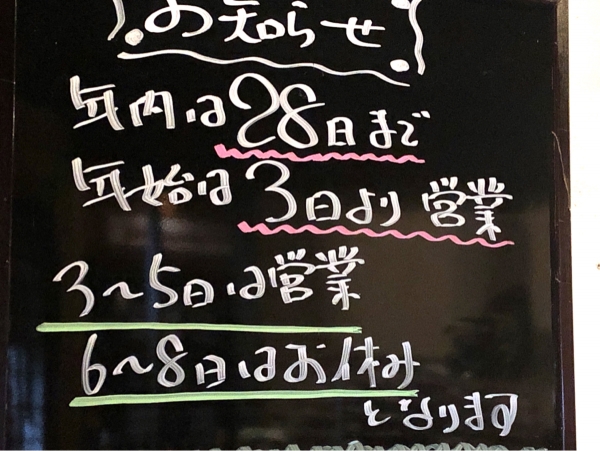 お知らせ
年内は28日まで
年始は3日より営業
3~5日は営業
6~8日はお休み
となります